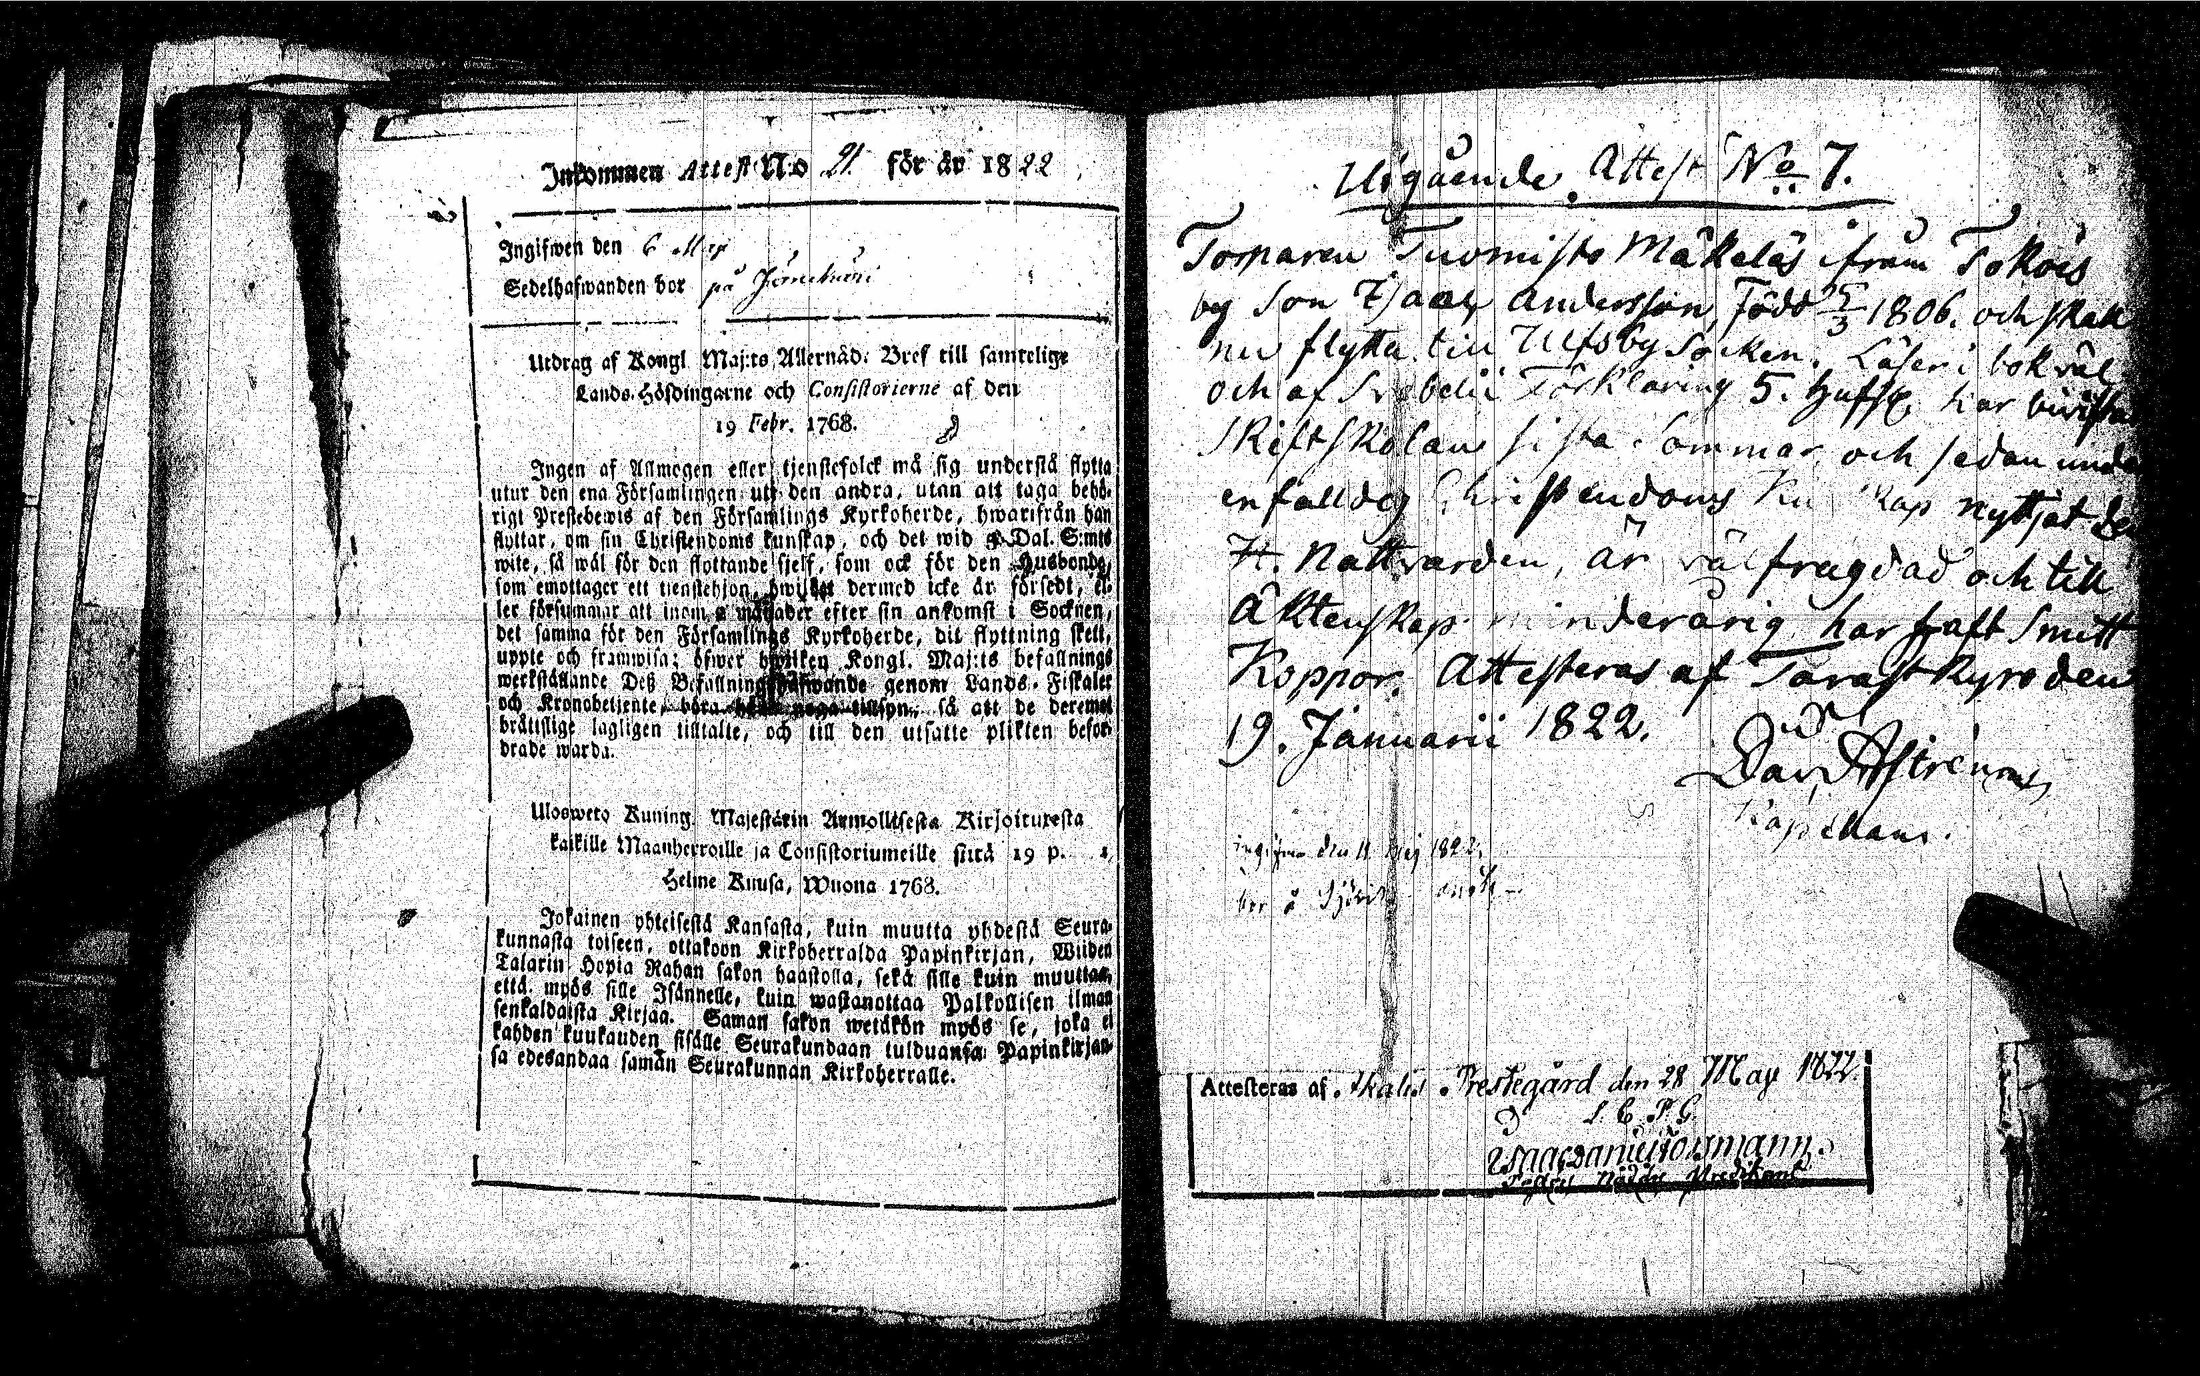 Inkommen Attest No 21. för år 1822
Ingifwen den 6 May
Sedelhafwanden bor på
Utdrag af Kongl. Maj:ts Allernåd: Bref till samtelige
Lands-Höfdingarne och Consistorierne af den
19 Febr. 1768.
Ingen af Allmogen eller tjenstefolck må sig understå flytta
utur den ena Församlingen uti den andra, utan att taga behö-
rigt Prestebewis af den Församlings Kyrkoherde, hwarifrån han
flyttar, om sin Christendoms kunskap, och det wid 5 Dal. S:mts
wite, så wäl för den flyttande sjelf, som ock för den Husbonde,
som emottager ett tienstehjon, hwilket dermed icke är försedt, el-
ler försummar att inom 2 månader efter sin ankomst i Socknen,
det samma för den Församlings Kyrkoherde, dit flyttning skett,
uppte och framwisa; öfwer hwilken Kongl. Maj:ts befallnings
werkställande Deß Befallningshafwande genom Lands-Fiskaler
och Kronobetjente, böra hafwa noga tillsyn, så att de deremot
bråttslige lagligen tilltalte, och till den utsatte plikten befor-
drade warda.
Ulosweto Kuning. Majestärin Armollisesta Kirjoituxesta
kaikille Maanherroille ja Consistoriumeille siitä 19 p.
Helme Kuusa, Wuona 1768.
Jokainen yhteisestä Kansasta, kuin muutta yhdestä Seura-
kunnasta toiseen, ottakoon Kirkoherralda Papinkirjan, Wiiden
Talarin Hopia Rahan sakon haastolla, sekä sille kuin muuttaa,
että myös sille Isännelle, kuin wastanottaa Palkollisen ilman
senkaldaista Kirjaa. Saman sakon wetäkön myös se, joka ei
kahden kuukauden sisälle Seurakundaan tulduansa Papinkirjan-
sa edesandaa saman Seurakunnan Kirkoherralle.
Utgående Attest No 7.
Torparen Tuomisto Mäkeläs ifrån Tokois
by Son Isaac Andersson, Född 5/3 1806. och skall
nu flytta till Ulfsby Socken. Läser i bok väl
och af Svebelii Förklaring 5. Hufst. har bivista
Skiftskolan sista Sommar, och sedan unde
enfalldig Christendoms Kunskap nyttjat de
H. Nattvarden, är välfrägdad och till
Äktenskap minderårig har haft Smitt
Koppor. Attesteras af Tavastkyro den
19. Januarii 1822.
David Astrénius
Kapellan.
ingifven den 11 Maj 1822.
bor å
Attesteras af Prestegård den 28 May 1822.